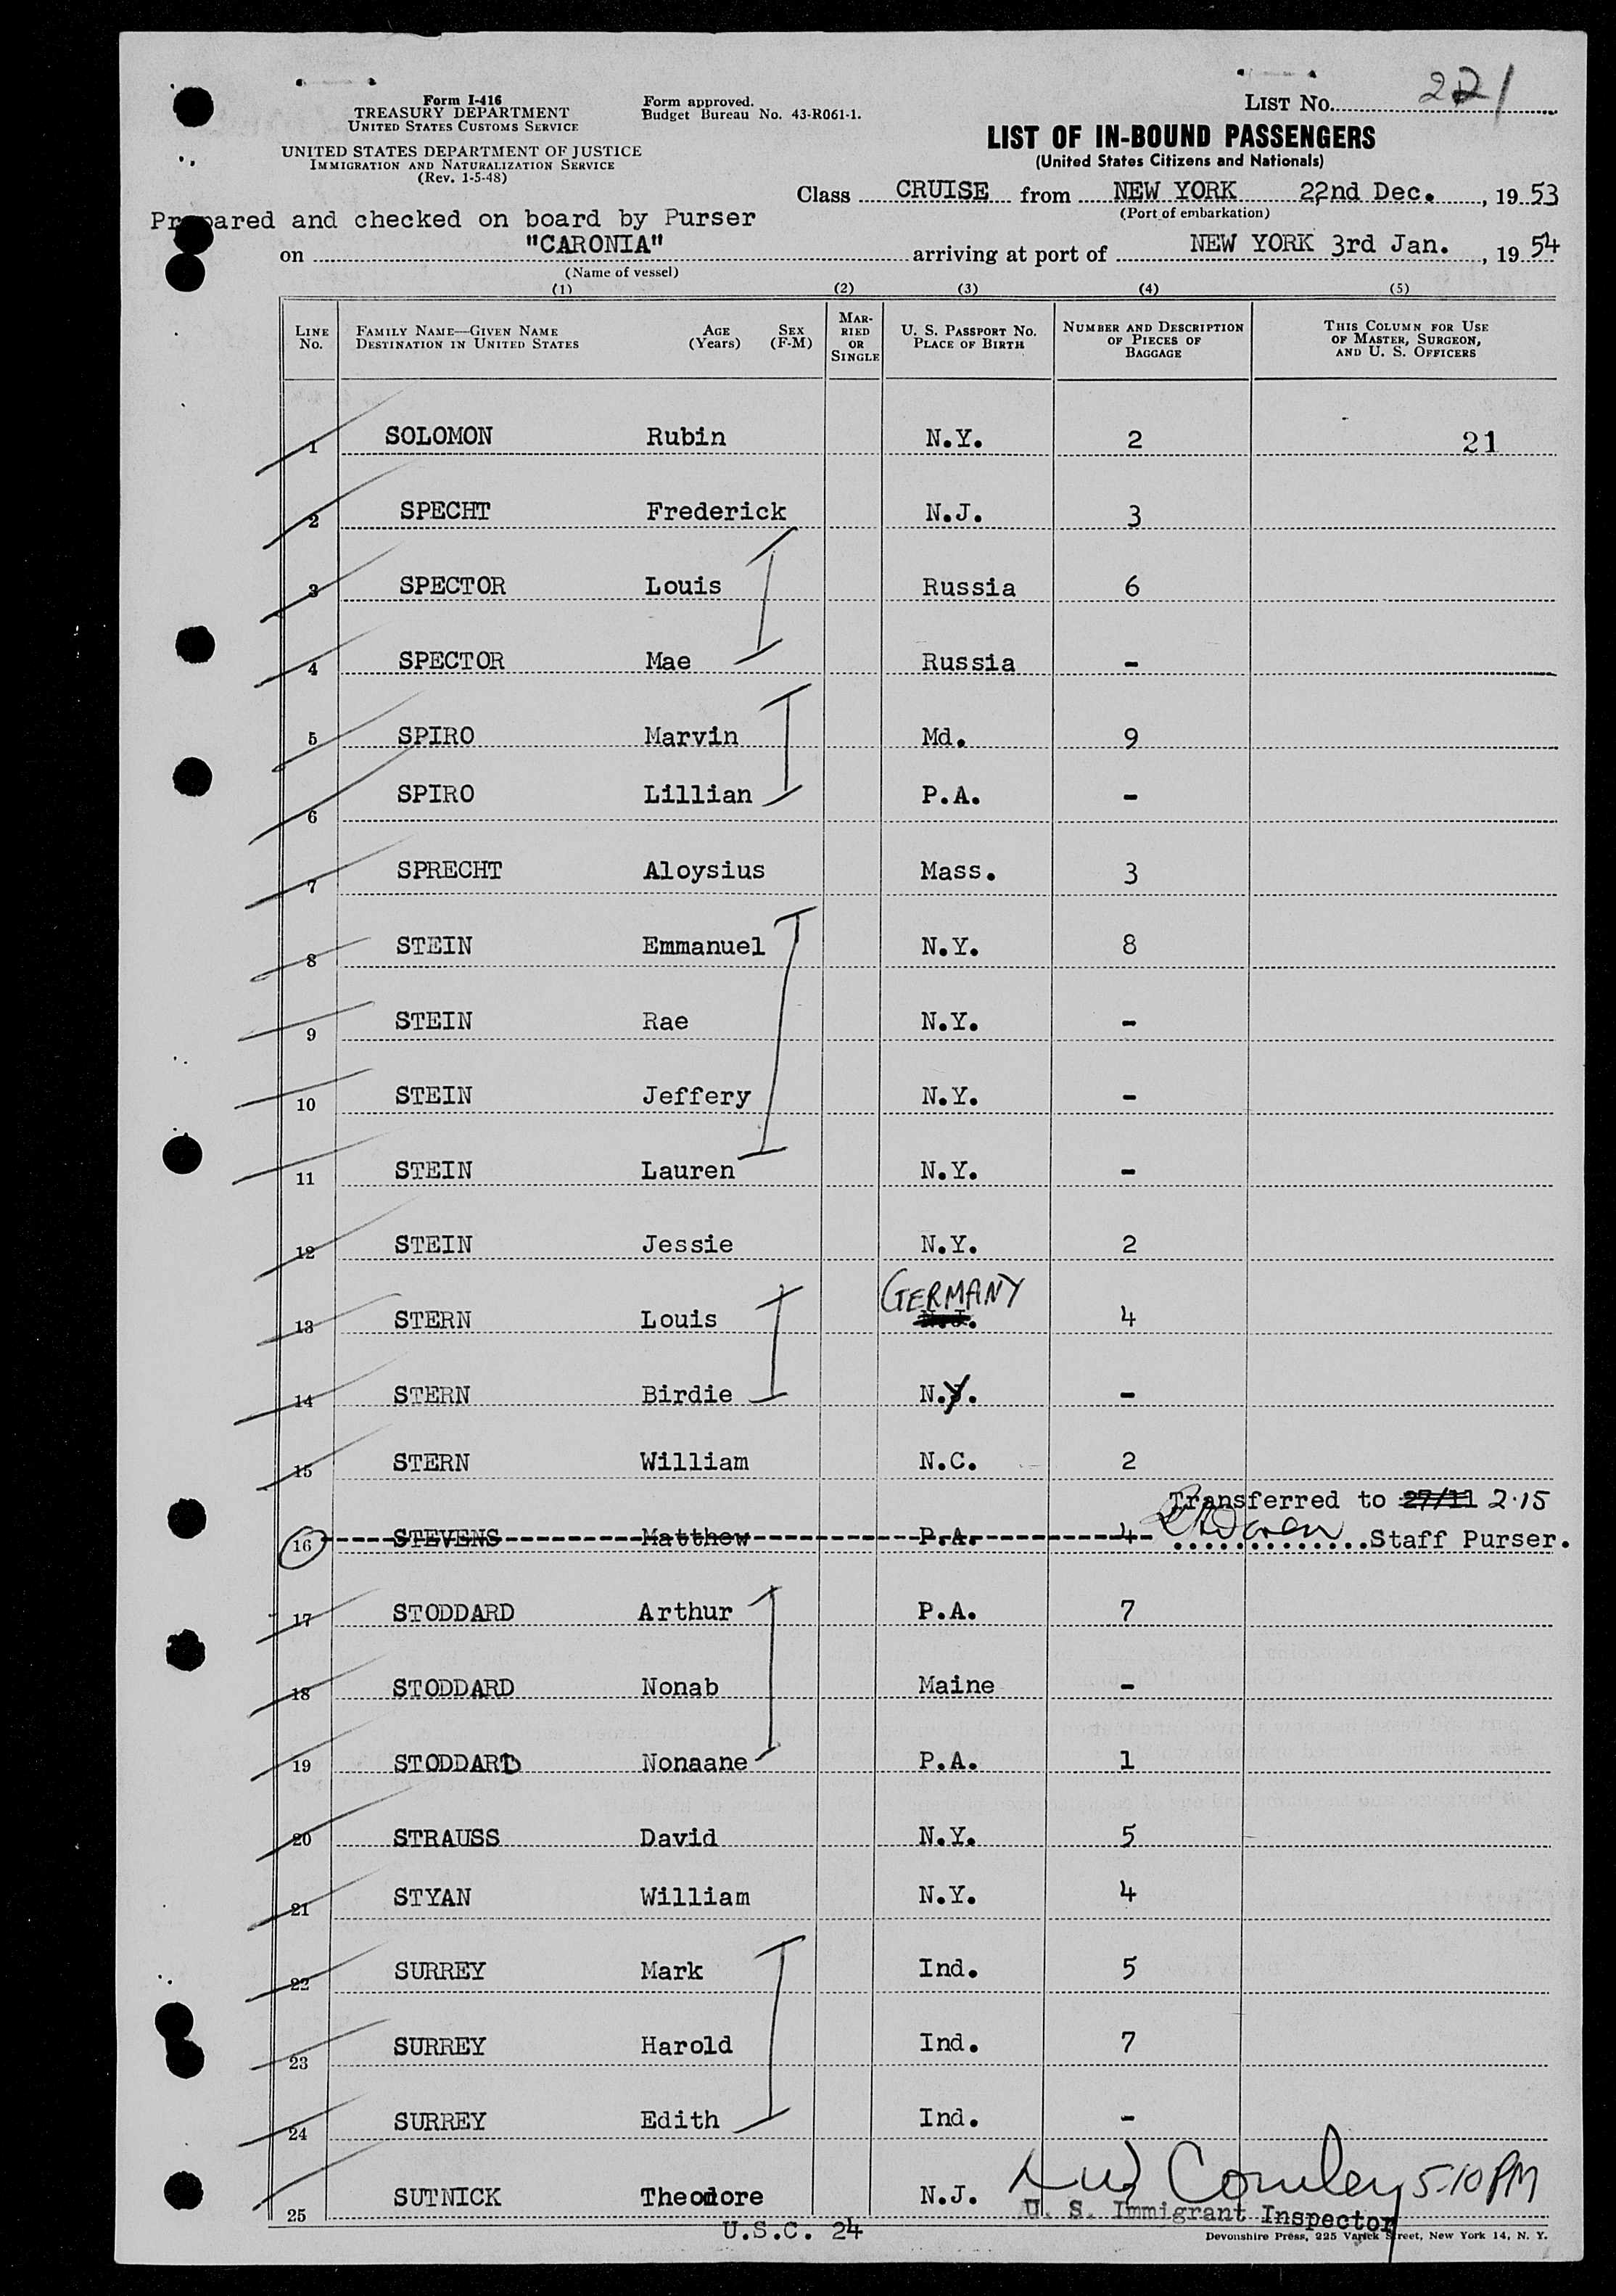 Form I-416
TREASURY DEPARTMENT
UNITED STATES CUSTOMS SERVICE
UNITED STATES DEPARTMENT OF JUSTICE
IMMIGRATION AND NATURALIZATION SERVICE
(Rev. 1-5-48)
Form approved.
Budget Bureau No. 43-R061-1.
LIST No. 221
LIST OF IN-BOUND PASSENGERS
(United States Citizens and Nationals)
Class CRUISE from NEW YORK 22nd Dec., 1953
(Port of embarkation)
Prepared and checked on board by Purser
on "CARONIA" arriving at port of NEW YORK 3rd Jan., 1954
(Name of vessel)
(1) (2) (3) (4) (5)
LINE No. FAMILY NAME—GIVEN NAME DESTINATION IN UNITED STATES AGE (Years) SEX (F-M) MARRIED OR SINGLE U. S. PASSPORT No. PLACE OF BIRTH NUMBER AND DESCRIPTION OF PIECES OF BAGGAGE THIS COLUMN FOR USE OF MASTER, SURGEON, AND U. S. OFFICERS
1 SOLOMON Rubin N.Y. 2 21
2 SPECHT Frederick N.J. 3
3 SPECTOR Louis Russia 6
4 SPECTOR Mae Russia -
5 SPIRO Marvin Md. 9
6 SPIRO Lillian P.A. -
7 SPRECHT Aloysius Mass. 3
8 STEIN Emmanuel N.Y. 8
9 STEIN Rae N.Y. -
10 STEIN Jeffery N.Y. -
11 STEIN Lauren N.Y. -
12 STEIN Jessie N.Y. 2
GERMANY
13 STERN Louis N.J. 4
14 STERN Birdie N.Y. -
15 STERN William N.C. 2
Transferred to 27/11 2.15
16 STEVENS Matthew P.A. 4 Staff Purser.
17 STODDARD Arthur P.A. 7
18 STODDARD Nonab Maine -
19 STODDARD Nonaane P.A. 1
20 STRAUSS David N.Y. 5
21 STYAN William N.Y. 4
22 SURREY Mark Ind. 5
23 SURREY Harold Ind. 7
24 SURREY Edith Ind. -
Conley 5:10 PM
25 SUTNICK Theodore N.J. U. S. Immigrant Inspector
U.S.C. 24
Devonshire Press, 225 Varick Street, New York 14, N. Y.